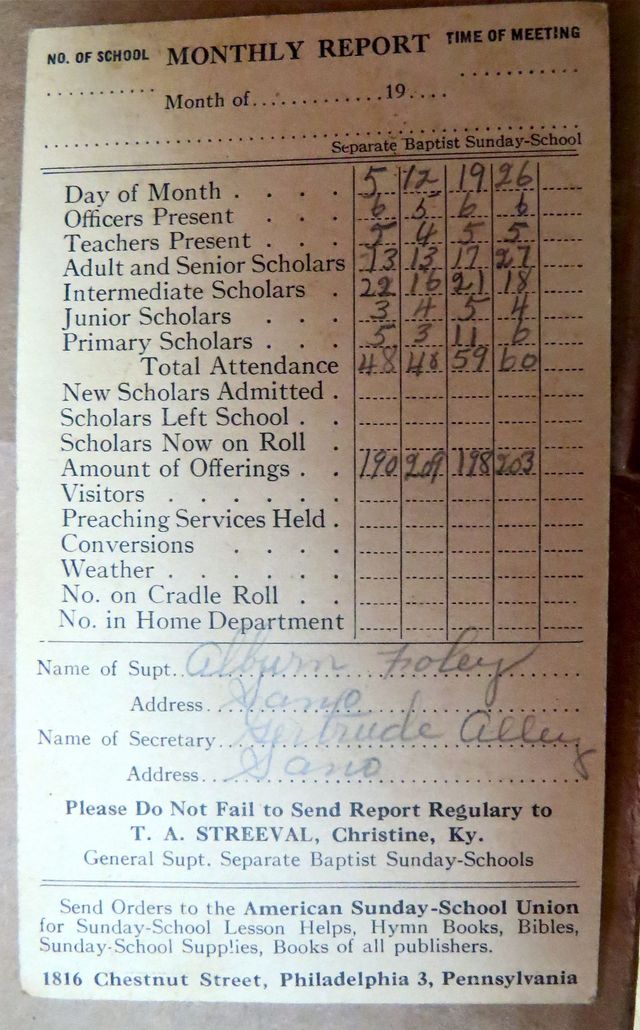 NO. OF SCHOOL MONTHLY REPORT TIME OF MEETING
Month of.............19....
Separate Baptist Sunday-School
Day of Month . . . . 5 12 19 26
Officers Present . . . 6 5 6 6
Teachers Present . . . 5 4 5 5
Adult and Senior Scholars 13 13 17 27
Intermediate Scholars . 22 16 21 18
Junior Scholars . . . 3 4 5 4
Primary Scholars . . . 5 3 11 6
Total Attendance 48 48 59 60
New Scholars Admitted .
Scholars Left School . .
Scholars Now on Roll .
Amount of Offerings . . 190 209 198 203
Visitors . . . . . .
Preaching Services Held .
Conversions . . . .
Weather . . . . . .
No. on Cradle Roll . .
No. in Home Department
Name of Supt. Alburn Foley
Address Sano
Name of Secretary Gertrude Alley
Address Sano
Please Do Not Fail to Send Report Regulary to
T. A. STREEVAL, Christine, Ky.
General Supt. Separate Baptist Sunday-Schools
Send Orders to the American Sunday-School Union
for Sunday-School Lesson Helps, Hymn Books, Bibles,
Sunday-School Supplies, Books of all publishers.
1816 Chestnut Street, Philadelphia 3, Pennsylvania